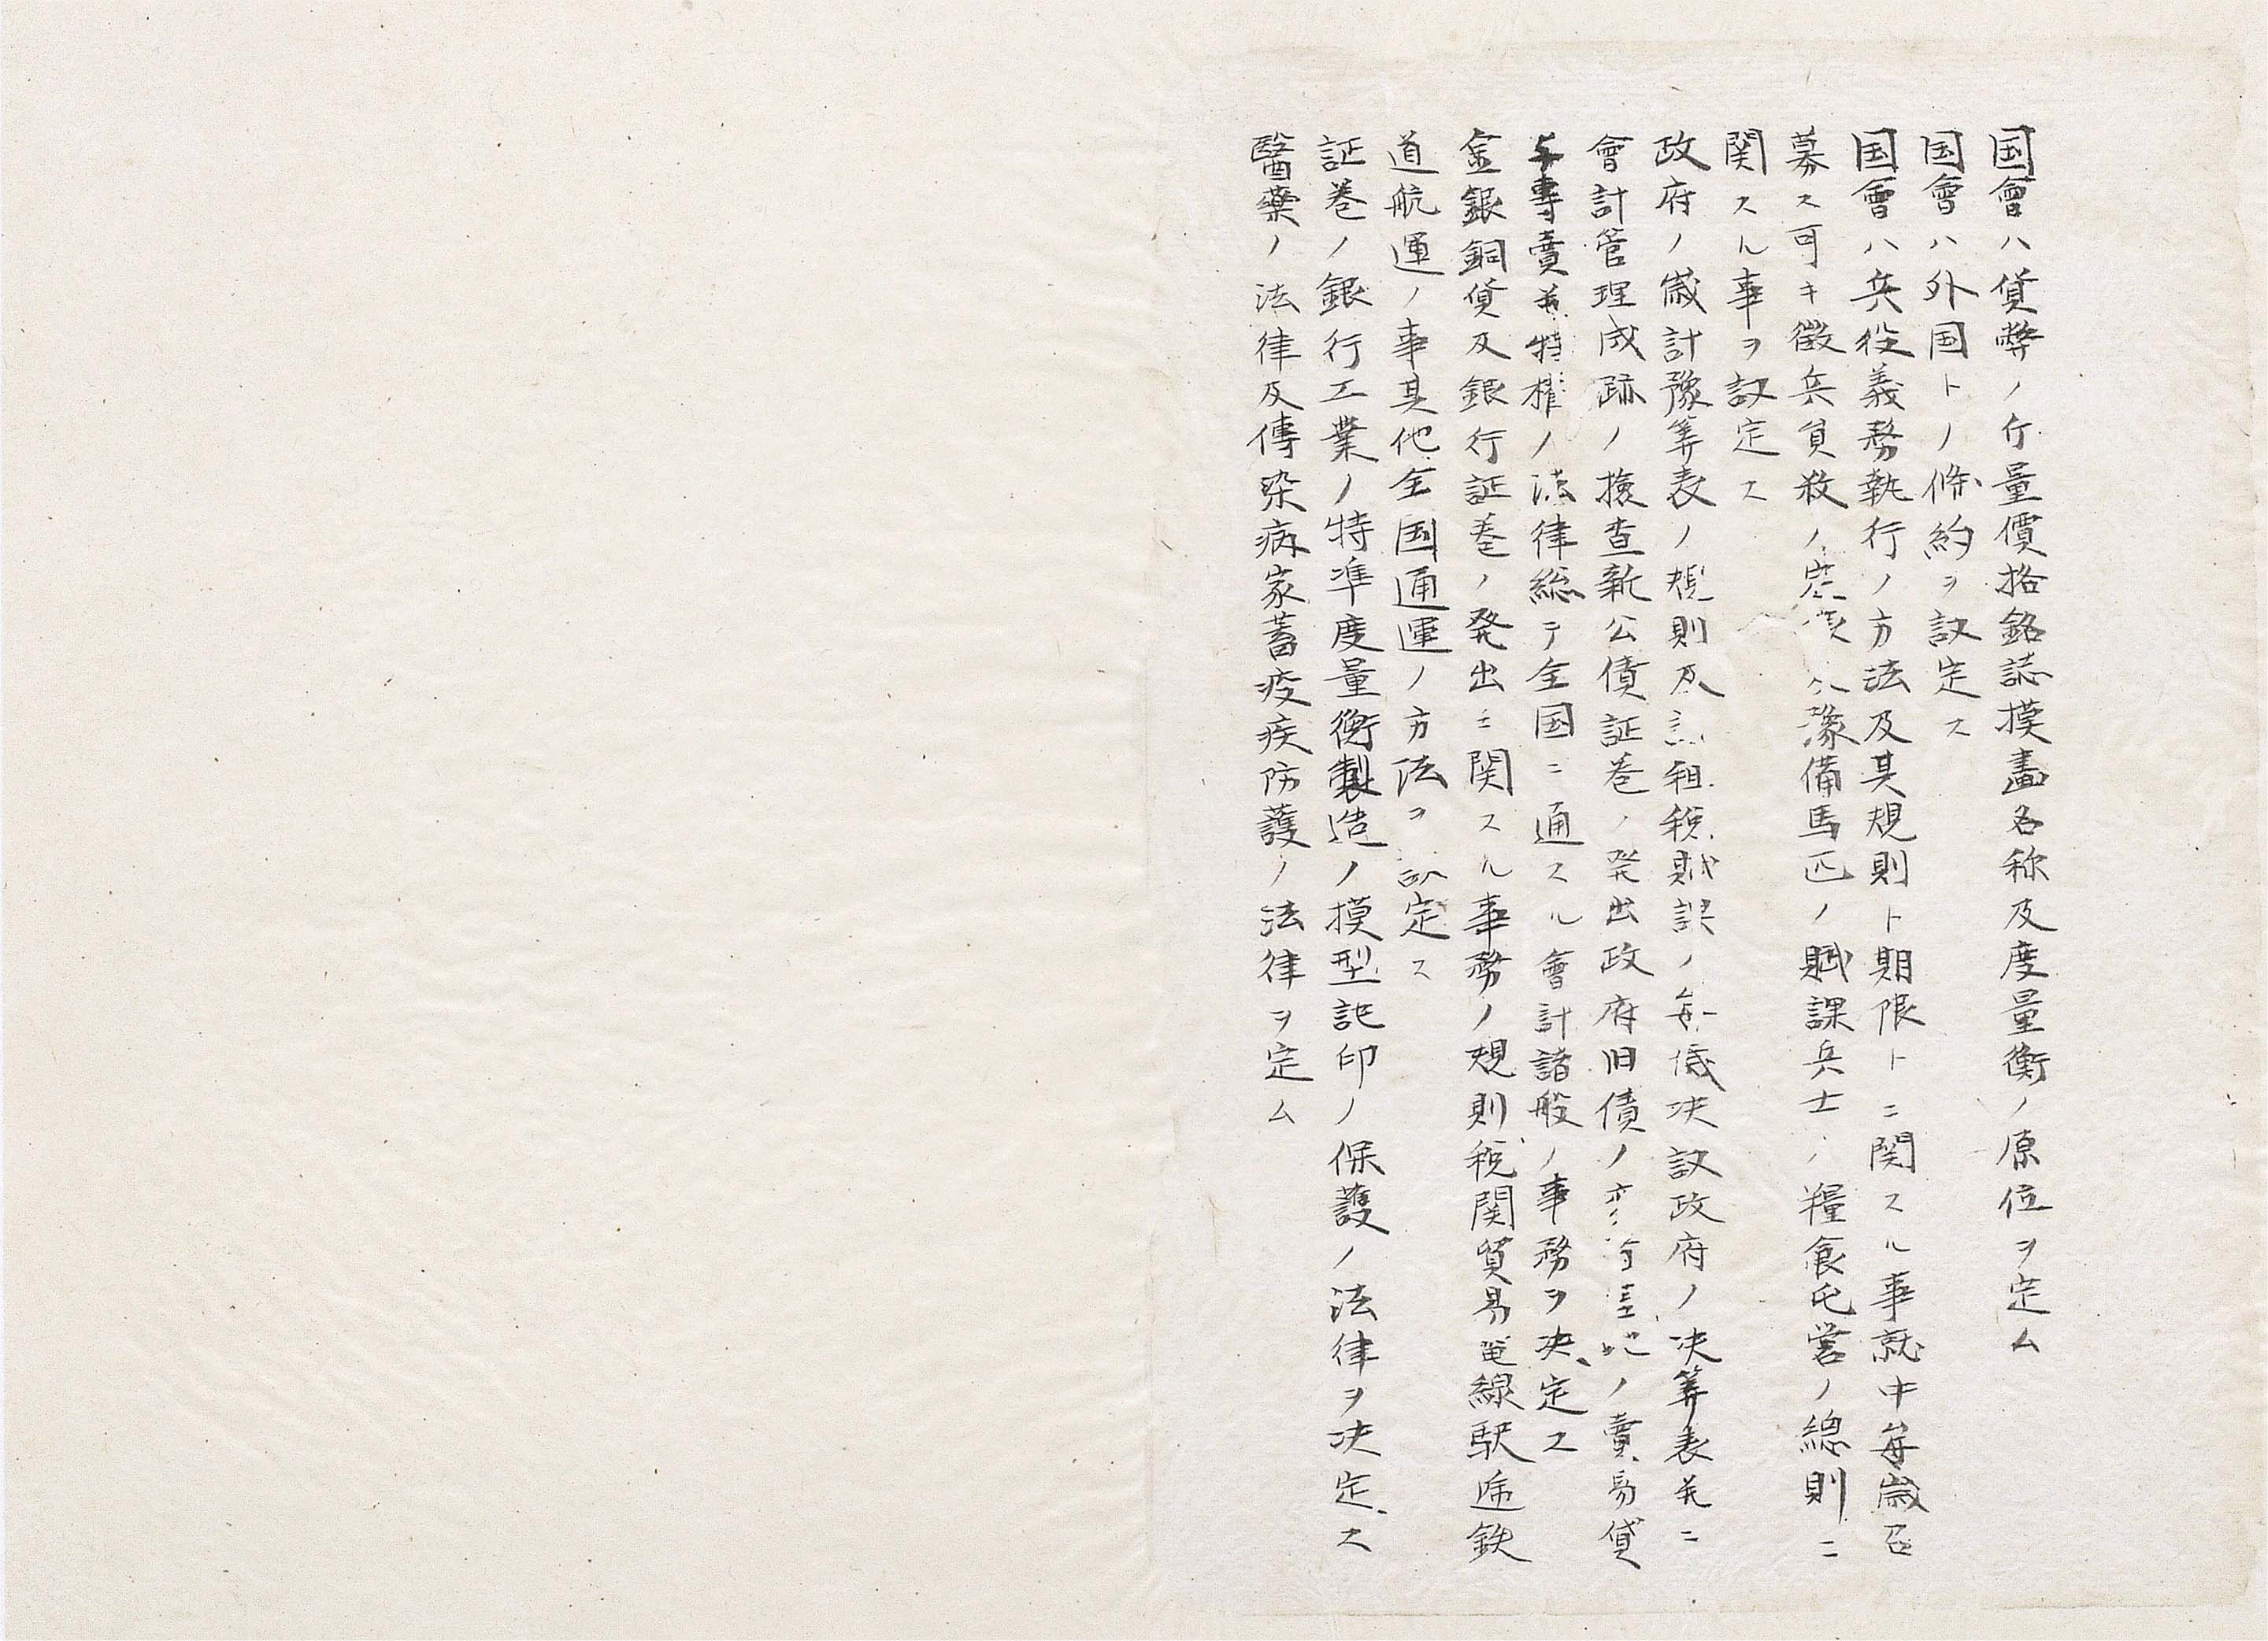 国會ハ貨幣ノ斤量價格銘誌摸畫名称及度量衡ノ原位ヲ定ム
国會ハ外国トノ條約ヲ議定ス
国會ハ兵役義務執行ノ方法及其規則ト期限トニ関スル事就中毎歳召
募ス可キ徴兵員数ノ定 豫備馬匹ノ賦課兵士ノ糧食屯営ノ總則ニ
関スル事ヲ議定ス
政府ノ歳計豫算表ノ規則及 租税賦課ノ毎歳決議政府ノ决算表並ニ
會計管理成跡ノ撿査新公債証巻ノ発出政府旧債ノ変 ノ賣易貸
与專賣並特権ノ法律総テ全国ニ通スル會計諸般ノ事務ヲ决定ス
金銀銅貨及銀行証巻ノ発出ニ関スル事務ノ規則税関貿易電線駅逓鉄
道航運ノ事其他全国通運ノ方法ヲ 定ス
証巻ノ銀行工業ノ特準度量衡製造ノ摸型記印ノ保護ノ法律ヲ决定ス
醫藥ノ法律及傳染病家蓄疫疾防護ノ法律ヲ定ム